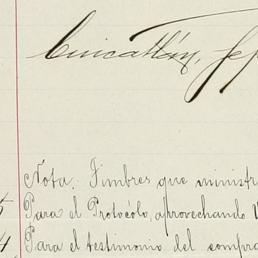 Cuicatlán, Sep
Nota: Timbres que ministr
5 Para el Protócolo, aprovechando l
4 Para el testimonio del compra